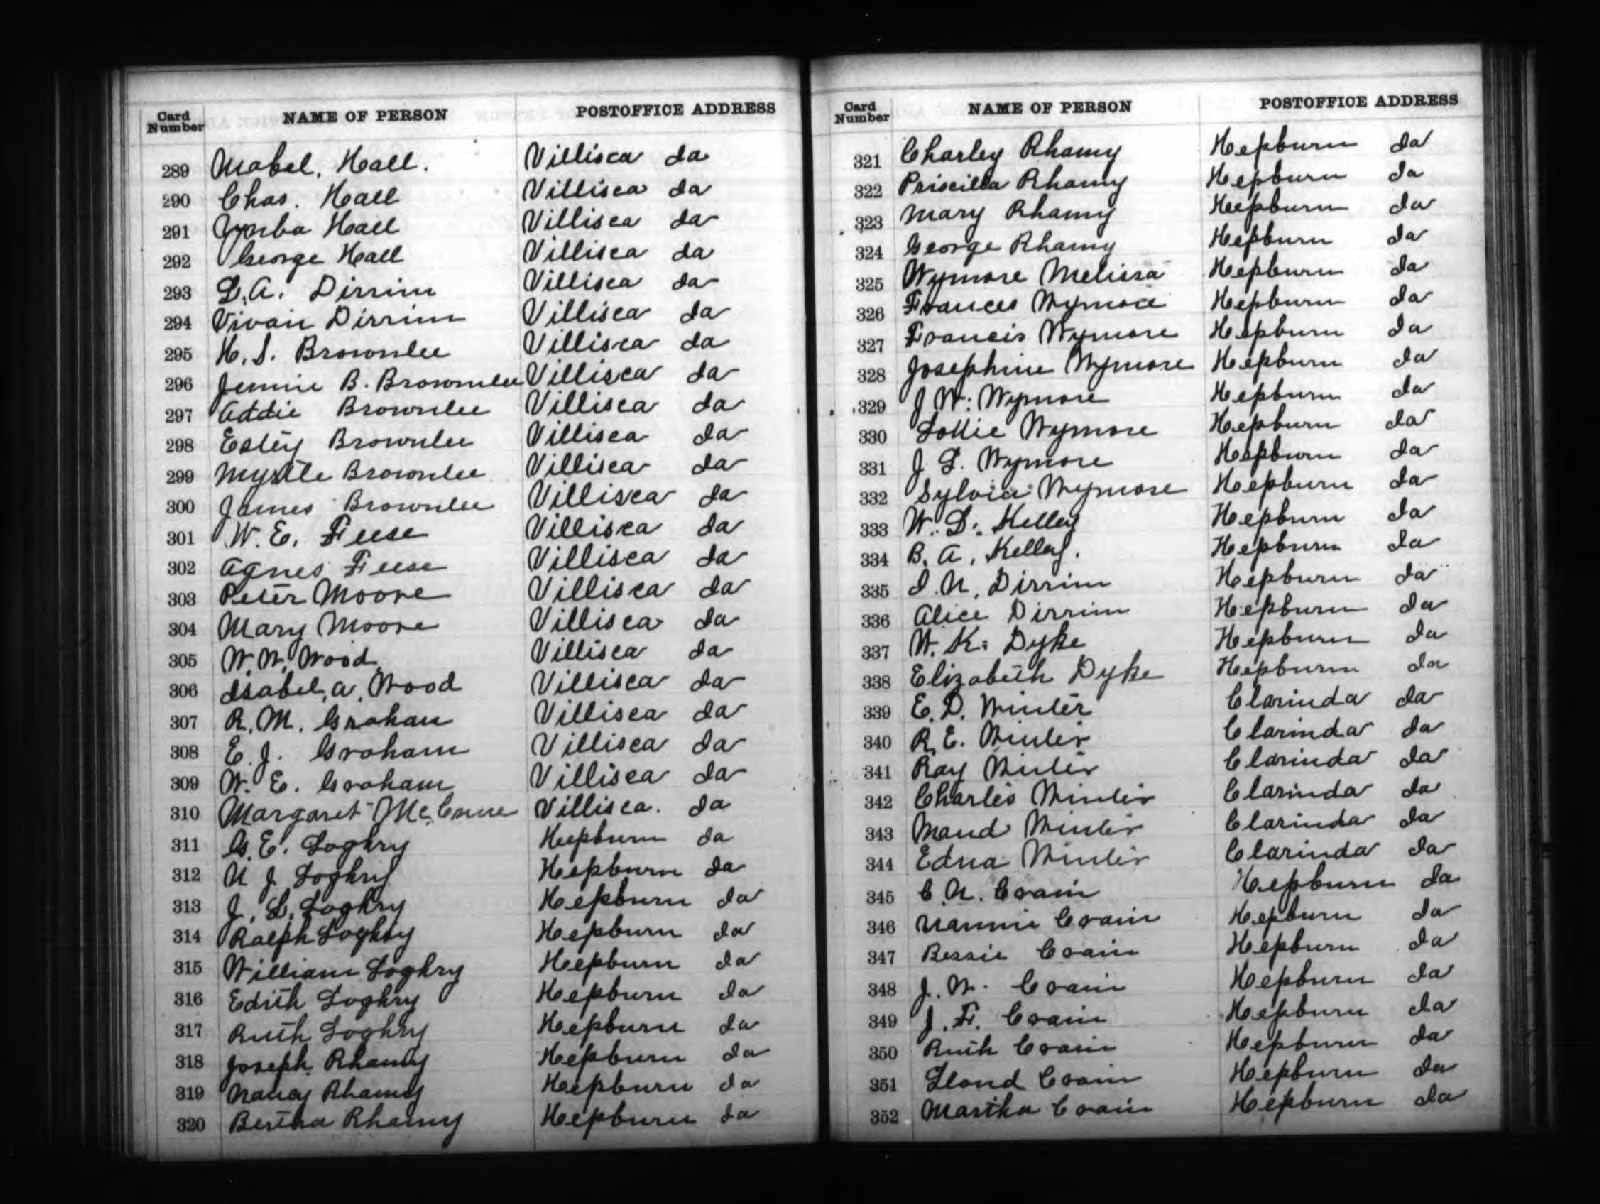 Card Number NAME OF PERSON POSTOFFICE ADDRESS
289 Mabel Hall. Villisca Ia
290 Chas. Hall Villisca Ia
291 Hall Villisca Ia
292 George Hall Villisca Ia
293 L. A. Dirrim Villisca Ia
294 Vivain Dirrim Villisca Ia
295 H. S. Brownlee Villisca Ia
296 Jennie B. Brownlee Villisca Ia
297 Addie Brownlee Villisca Ia
298 Esley Brownlee Villisca Ia
299 Myrtle Brownlee Villisca Ia
300 James Brownlee Villisca Ia
301 W. E. Feese Villisca Ia
302 Agnes Feese Villisca Ia
303 Peter Moore Villisca Ia
304 Mary Moore Villisca Ia
305 W. W. Wood Villisca Ia
306 Isabel, A, Wood Villisca Ia
307 R. M. Graham Villisca Ia
308 E. J. Graham Villisca Ia
309 W. E. Graham Villisca Ia
310 Margaret Villisca. Ia
311 G. E. Loghry Hepburn Ia
312 N J Loghry Hepburn Ia
313 J. L. Loghry Hepburn Ia
314 Ralph Loghry Hepburn Ia
315 William Loghry Hepburn Ia
316 Edith Loghry Hepburn Ia
317 Ruth Loghry Hepburn Ia
318 Joseph Rhamy Hepburn Ia
319 Nancy Rhamy Hepburn Ia
320 Bertha Rhamy Hepburn Ia
Card Number NAME OF PERSON POSTOFFICE ADDRESS
321 Charley Rhamy Hepburn Ia
322 Priscilla Rhamy Hepburn Ia
323 Mary Rhamy Hepburn Ia
324 George Rhamy Hepburn Ia
325 Wymore Melissa Hepburn Ia
326 Frances Wymore Hepburn Ia
327 Francis Wymore Hepburn Ia
328 Josephine Wymore Hepburn Ia
329 J. W. Wymore Hepburn Ia
330 Lottie Wymore Hepburn Ia
331 J L. Wymore Hepburn Ia
332 Sylvia Wymore Hepburn Ia
333 W. D. Kelley Hepburn Ia
334 B. A. Kelley. Hepburn Ia
335 I. N. Dirrim Hepburn Ia
336 Alice Dirrim Hepburn Ia
337 W. K. Dyke Hepburn Ia
338 Elizabeth Dyke Hepburn Ia
339 E. D. Winter Clarinda Ia
340 R. E. Winter Clarinda Ia
341 Ray Winter Clarinda Ia
342 Charles Winter Clarinda Ia
343 Maud Winter Clarinda Ia
344 Edna Winter Clarinda Ia
345 C. N. Crain Hepburn Ia
346 Nannie Crain Hepburn Ia
347 Bessie Crain Hepburn Ia
348 J. W. Crain Hepburn Ia
349 J. F. Crain Hepburn Ia
350 Ruth Crain Hepburn Ia
351 Crain Hepburn Ia
352 Martha Crain Hepburn Ia